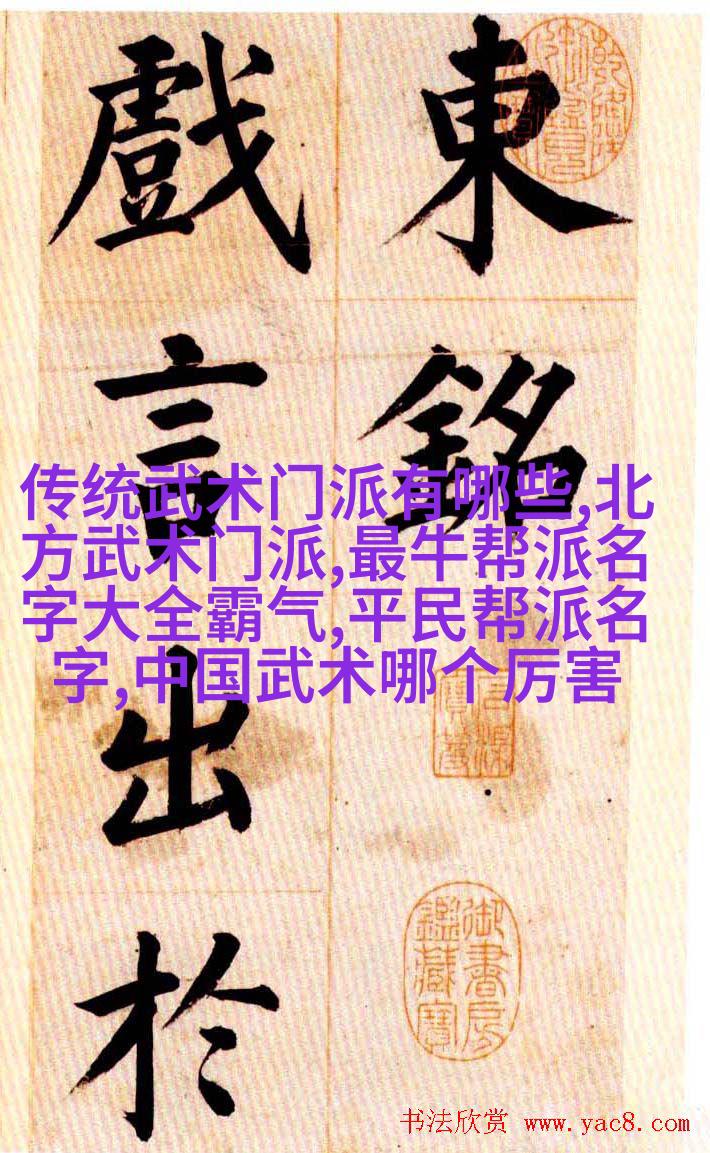 東銘
戲言出於
传统武术门派有哪些,北
方武术门派,最牛帮派名
字大全霸气,平民帮派名
字,中国武术哪个厉害
石渠
寶笈
御書房
鑑藏寶
书法欣赏 www.yac8.com